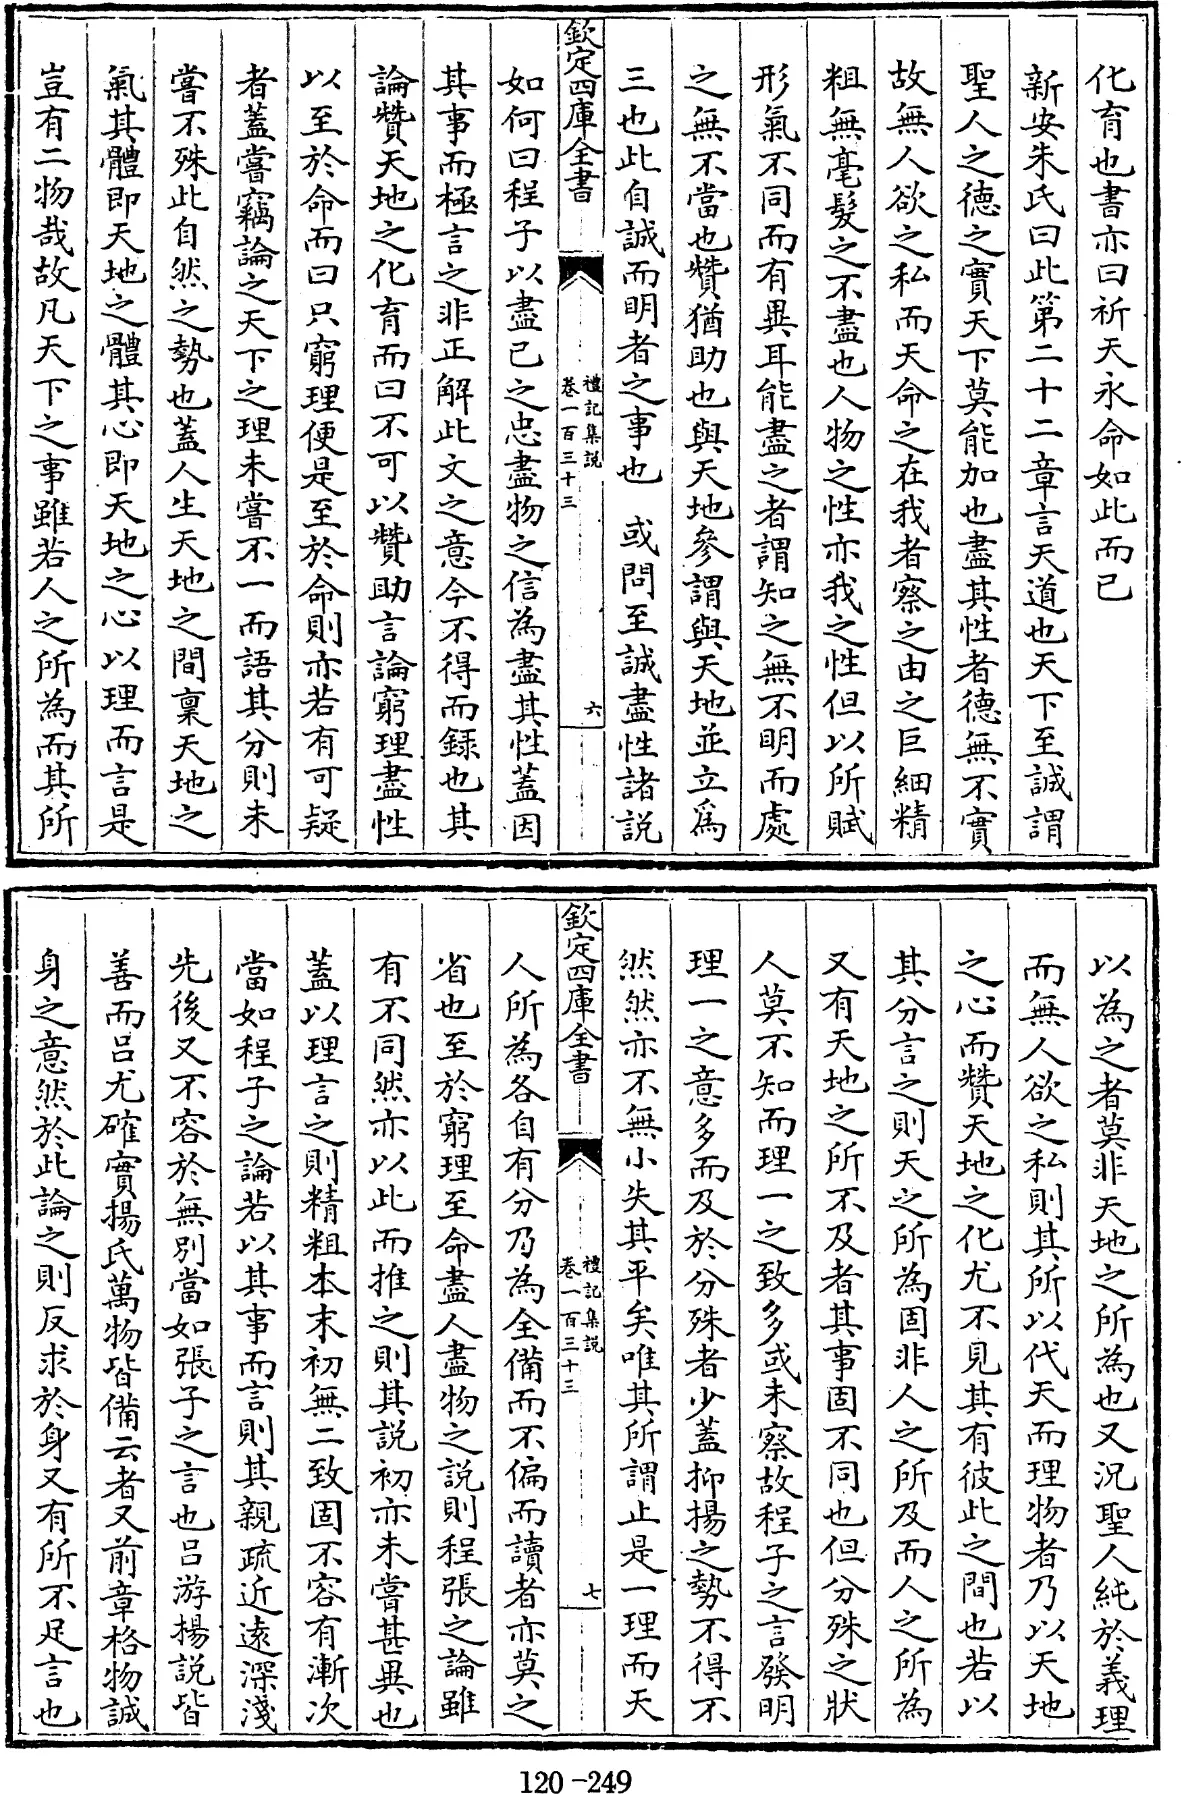 化育也書亦曰祈天永命如此而已
新安朱氏曰此第二十二章言天道也天下至誠謂
聖人之德之實天下莫能加也盡其性者德無不實
故無人欲之私而天命之在我者察之由之巨細精
粗無毫髮之不盡也人物之性亦我之性但以所賦
形氣不同而有異耳能盡之者謂知之無不明而處
之無不當也贊猶助也與天地參謂與天地並立爲
三也此自誠而明者之事也　或問至誠盡性諸説
欽定四庫全書
禮記集説
卷一百三十三
六
如何曰程子以盡己之忠盡物之信為盡其性蓋因
其事而極言之非正解此文之意今不得而録也其
論贊天地之化育而曰不可以贊助言論窮理盡性
以至於命而曰只窮理便是至於命則亦若有可疑
者蓋嘗竊論之天下之理未嘗不一而語其分則未
嘗不殊此自然之勢也蓋人生天地之間稟天地之
氣其體即天地之體其心即天地之心以理而言是
豈有二物哉故凡天下之事雖若人之所為而其所
以為之者莫非天地之所為也又況聖人純於義理
而無人欲之私則其所以代天而理物者乃以天地
之心而贊天地之化尤不見其有彼此之間也若以
其分言之則天之所為固非人之所及而人之所為
又有天地之所不及者其事固不同也但分殊之狀
人莫不知而理一之致多或未察故程子之言發明
理一之意多而及於分殊者少蓋抑揚之勢不得不
然然亦不無小失其平矣唯其所謂止是一理而天
欽定四庫全書
禮記集説
卷一百三十三
七
人所為各自有分乃為全備而不偏而讀者亦莫之
省也至於窮理至命盡人盡物之説則程張之論雖
有不同然亦以此而推之則其説初亦未嘗甚異也
蓋以理言之則精粗本末初無二致固不容有漸次
當如程子之論若以其事而言則其親疏近遠深淺
先後又不容於無別當如張子之言也呂游楊説皆
善而呂尤確實揚氏萬物皆備云者又前章格物誠
身之意然於此論之則反求於身又有所不足言也
120-249